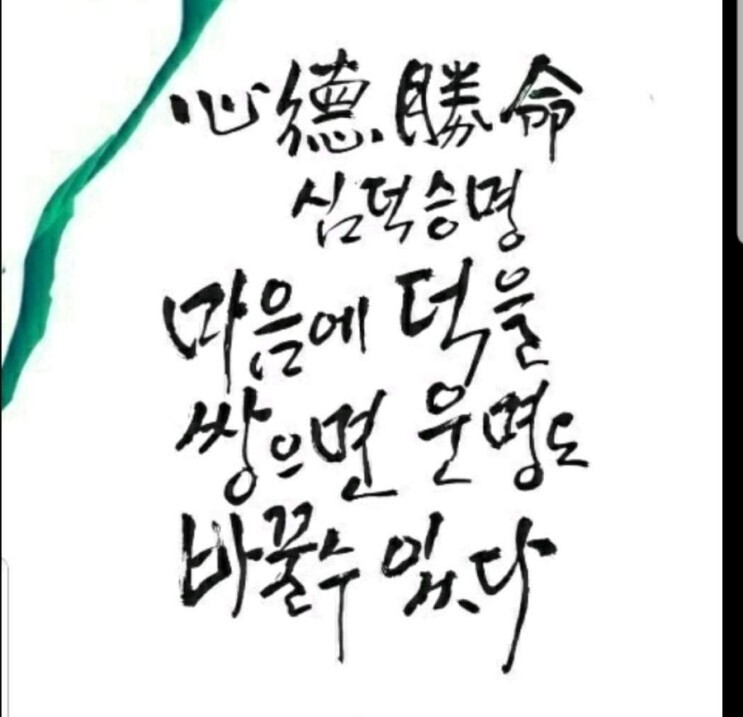 心德勝命
심덕승명
마음에 덕을
쌓으면 운명도
바꿀수 있다